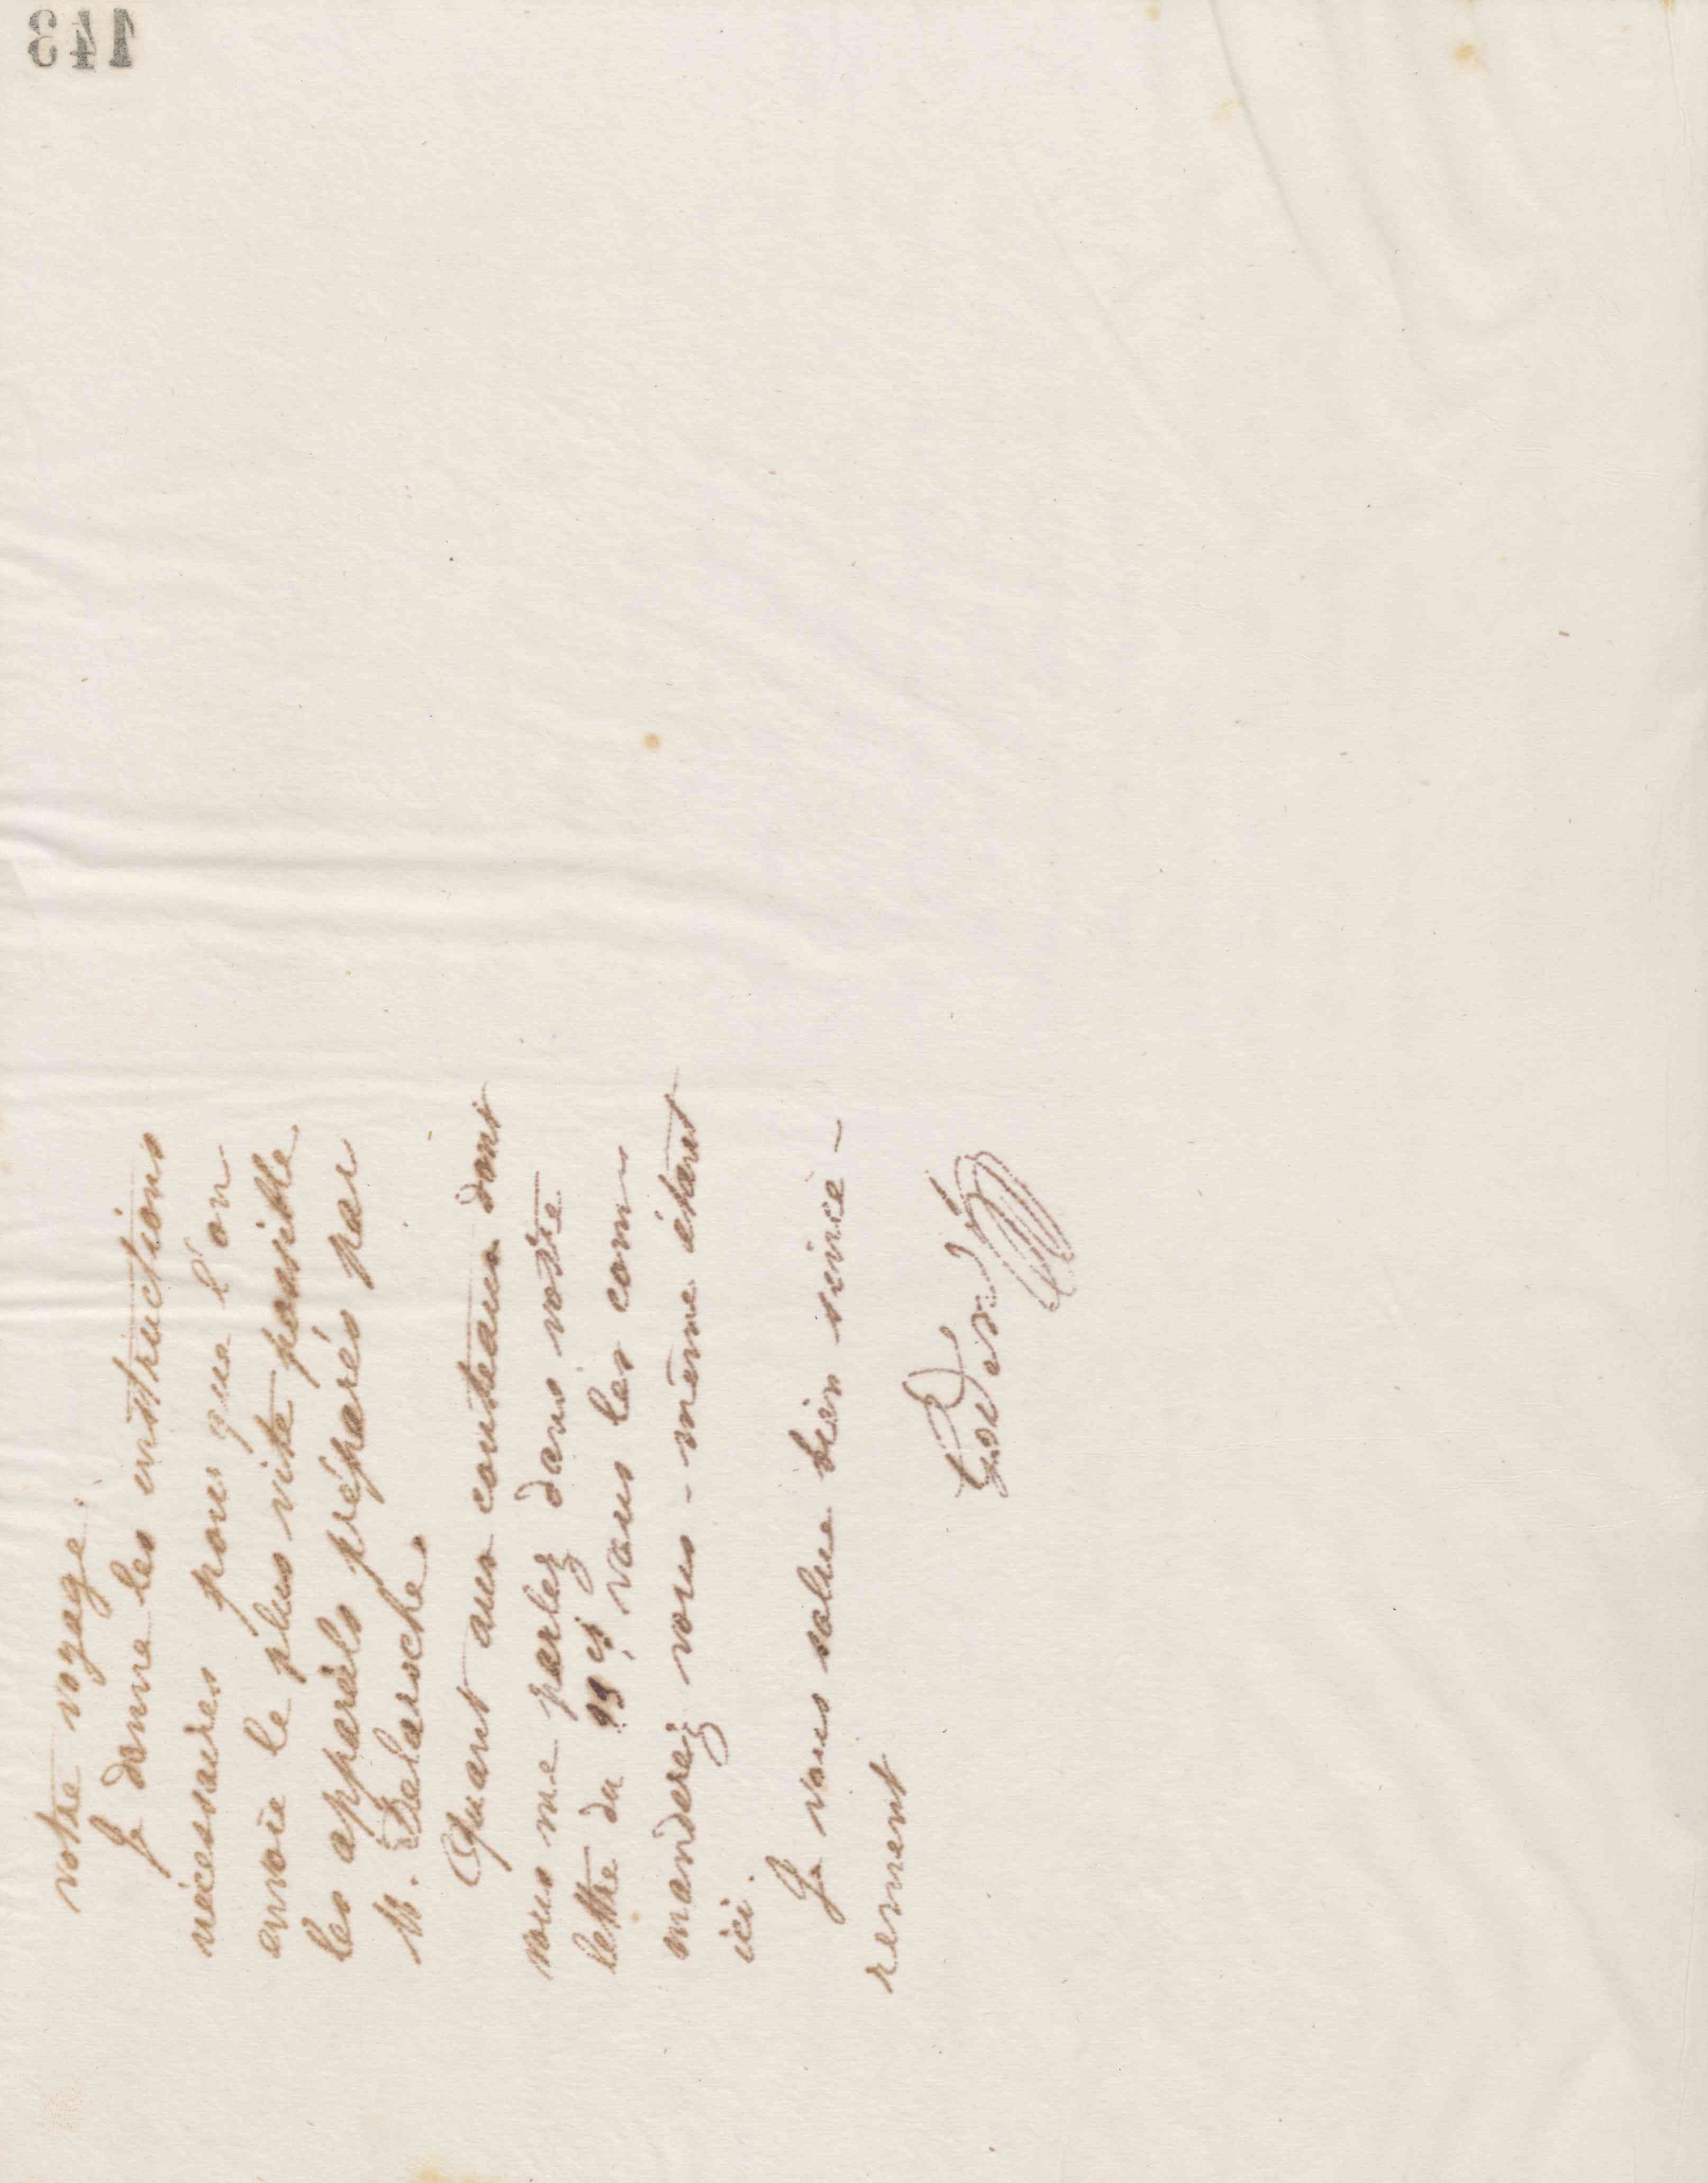 143
votre voyage.
Je donne les instructions
nécessaires pour que l'on
envoie le plus vite possible
les apparels préparés par
M. Delaroche.
Quant aux couteaux dont
vous me parlez dans votre
lettre du vous les com
manderez vous-même étant
ici.
Je vous salue bien sincè-
rement
Godin